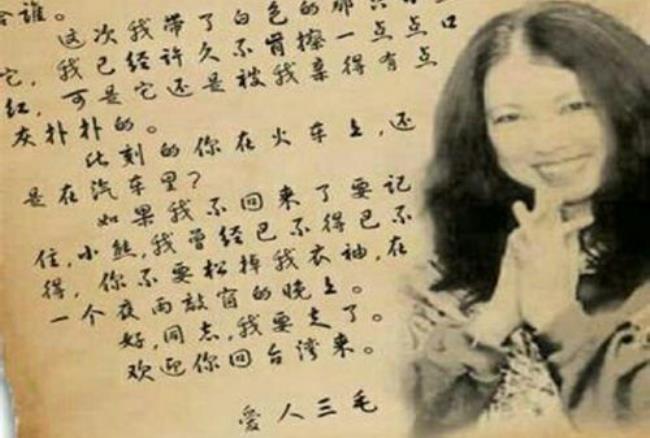 合谁。
这次我带了白色的那只小
它,我已经许久不肯擦一点点口
红,可是它还是被我亲得有点
灰扑扑的。
此刻的你在火车上,还
是在汽车里?
如果我不回来了要记
住,小熊,我曾经巴不得巴不
得,你不要松掉我衣袖,在
一个夜雨敲窗的晚上。
好,同志,我要走了。
欢迎你回台湾来。
爱人三毛